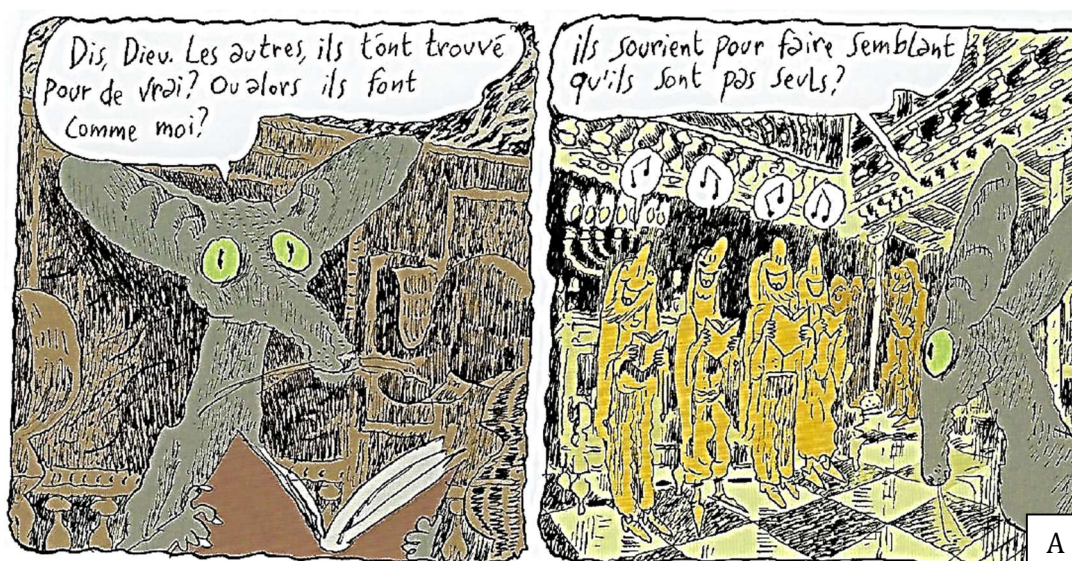 Dis, Dieu. Les autres, ils t'ont trouvé
pour de vrai? Ou alors ils font
comme moi?
ils sourient pour faire semblant
qu'ils sont pas seuls?
A